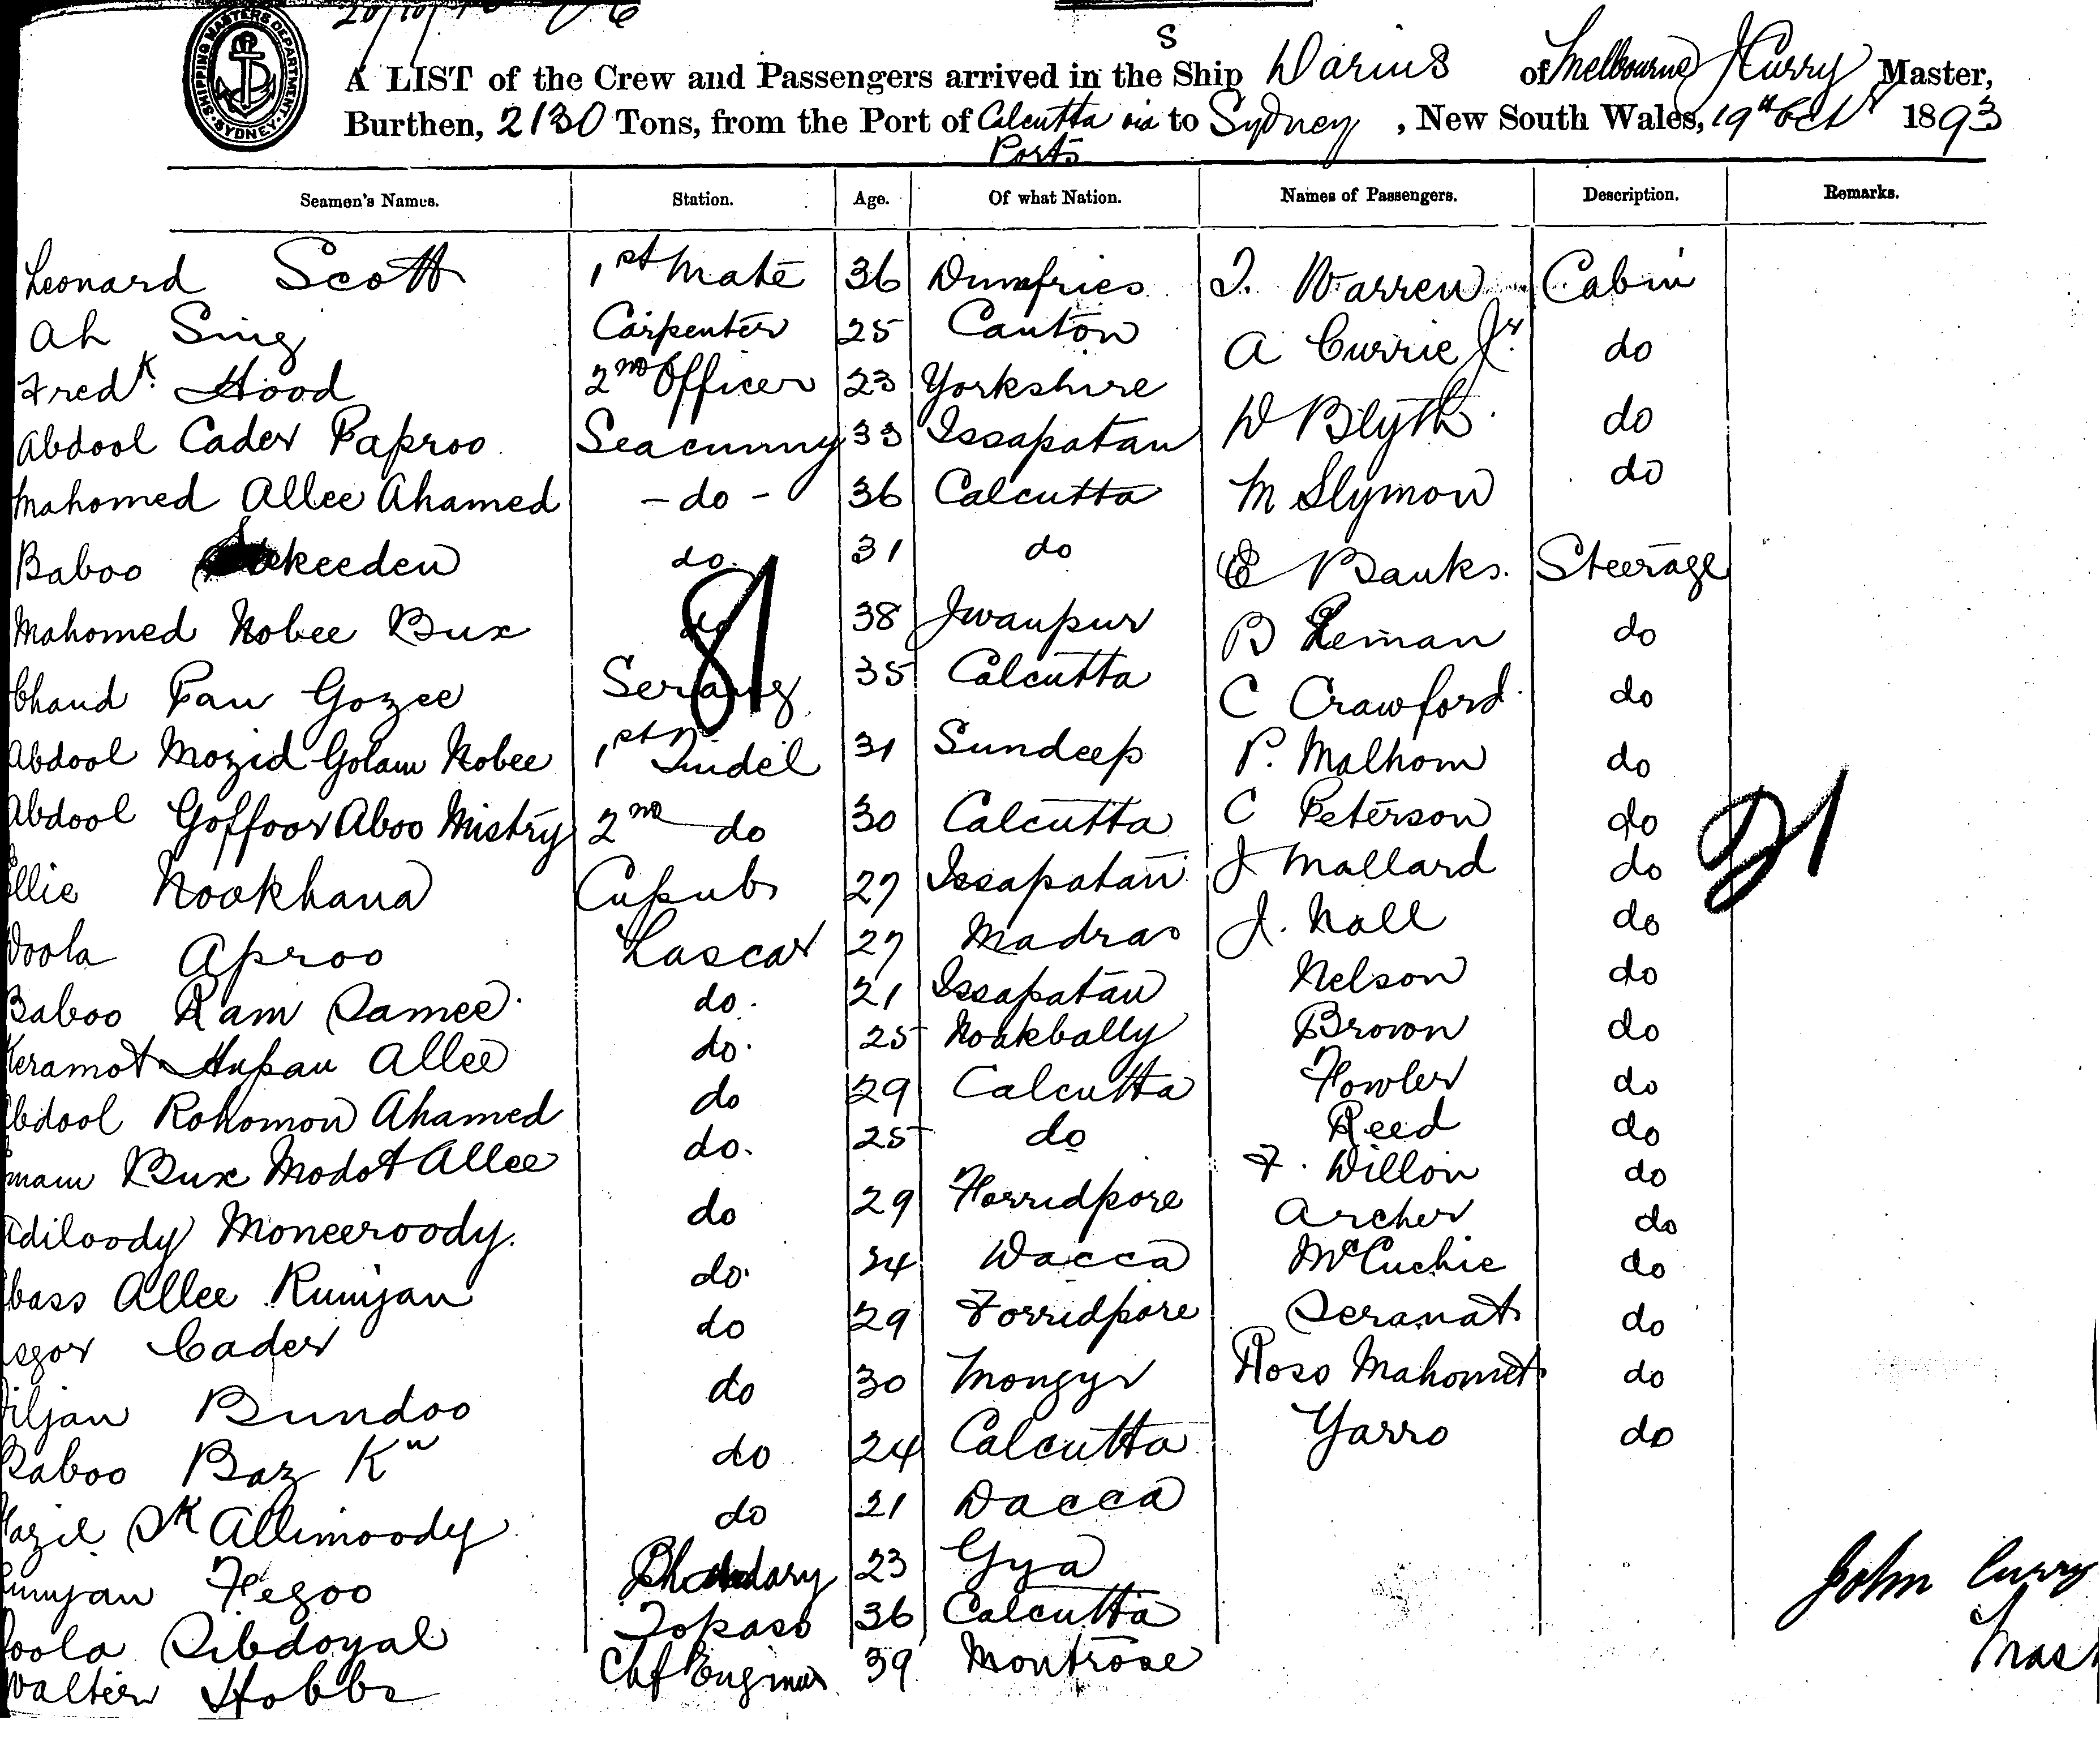 20/10/
SHIPPING MASTERS DEPARTMENT
SYDNEY
S
A LIST of the Crew and Passengers arrived in the Ship Darius of Melbourne J Curry Master,
Burthen, 2130 Tons, from the Port of Calcutta via to Sydney, New South Wales, 19th Octr 1893
Ports
Seamen's Names. Station. Age. Of what Nation. Names of Passengers. Description. Remarks.
Leonard Scott 1st Mate 36 Dumfries T. Warren Cabin
Ah Sing Carpenter 25 Canton A Currie Jr. do
Fredk. Hood 2nd Officer 23 Yorkshire D Blyth do
Abdool Cader Paproo Seacunny 33 Issapatan M Slymon do
Mahomed Allee Ahamed - do - 36 Calcutta E Banks. Steerage
Baboo do. 31 do B Leman do
Mahomed Nobee Bux do 38 Jwanpur C Crawford do
Chand Fan Gozee Serang 35 Calcutta P. Malhom do
81
Abdool Mozid Golam Nobee 1st Tindel 31 Sundeep C Peterson do
Abdool Goffoor Aboo Mistry 2nd do 30 Calcutta J Mallard do
21
Ellie Nookhana Cupubs 27 Issapatan J. Nall do
Doola Aproo Lascar 27 Madras Nelson do
Baboo Ram Samee do. 21 Issapatan Brown do
Keramot Hupan Allee do. 25 Noakbally Fowler do
Abdool Rohomon Ahamed do 29 Calcutta Reed do
Emam Bux Modot Allee do. 25 do F. Dillon do
Adiloody Moneeroody. do 29 Forridpore Archer do
Abass Allee Rumjan do. 24 Dacca McCuchie do
Asgor Cader do 29 Forridpore Seranat do
Diljan Bundoo do 30 Mongyr Roso Mahomet do
Baboo Baz Kn do 24 Calcutta Yarro do
Fazil Sk Allimoody do 21 Dacca
Rumjan Fegoo Bhandary 23 Gya
Doola Sibdoyal Topass 36 Calcutta
Walter Hobbs Chf Engineer 39 Montrose
John Curry
Mas